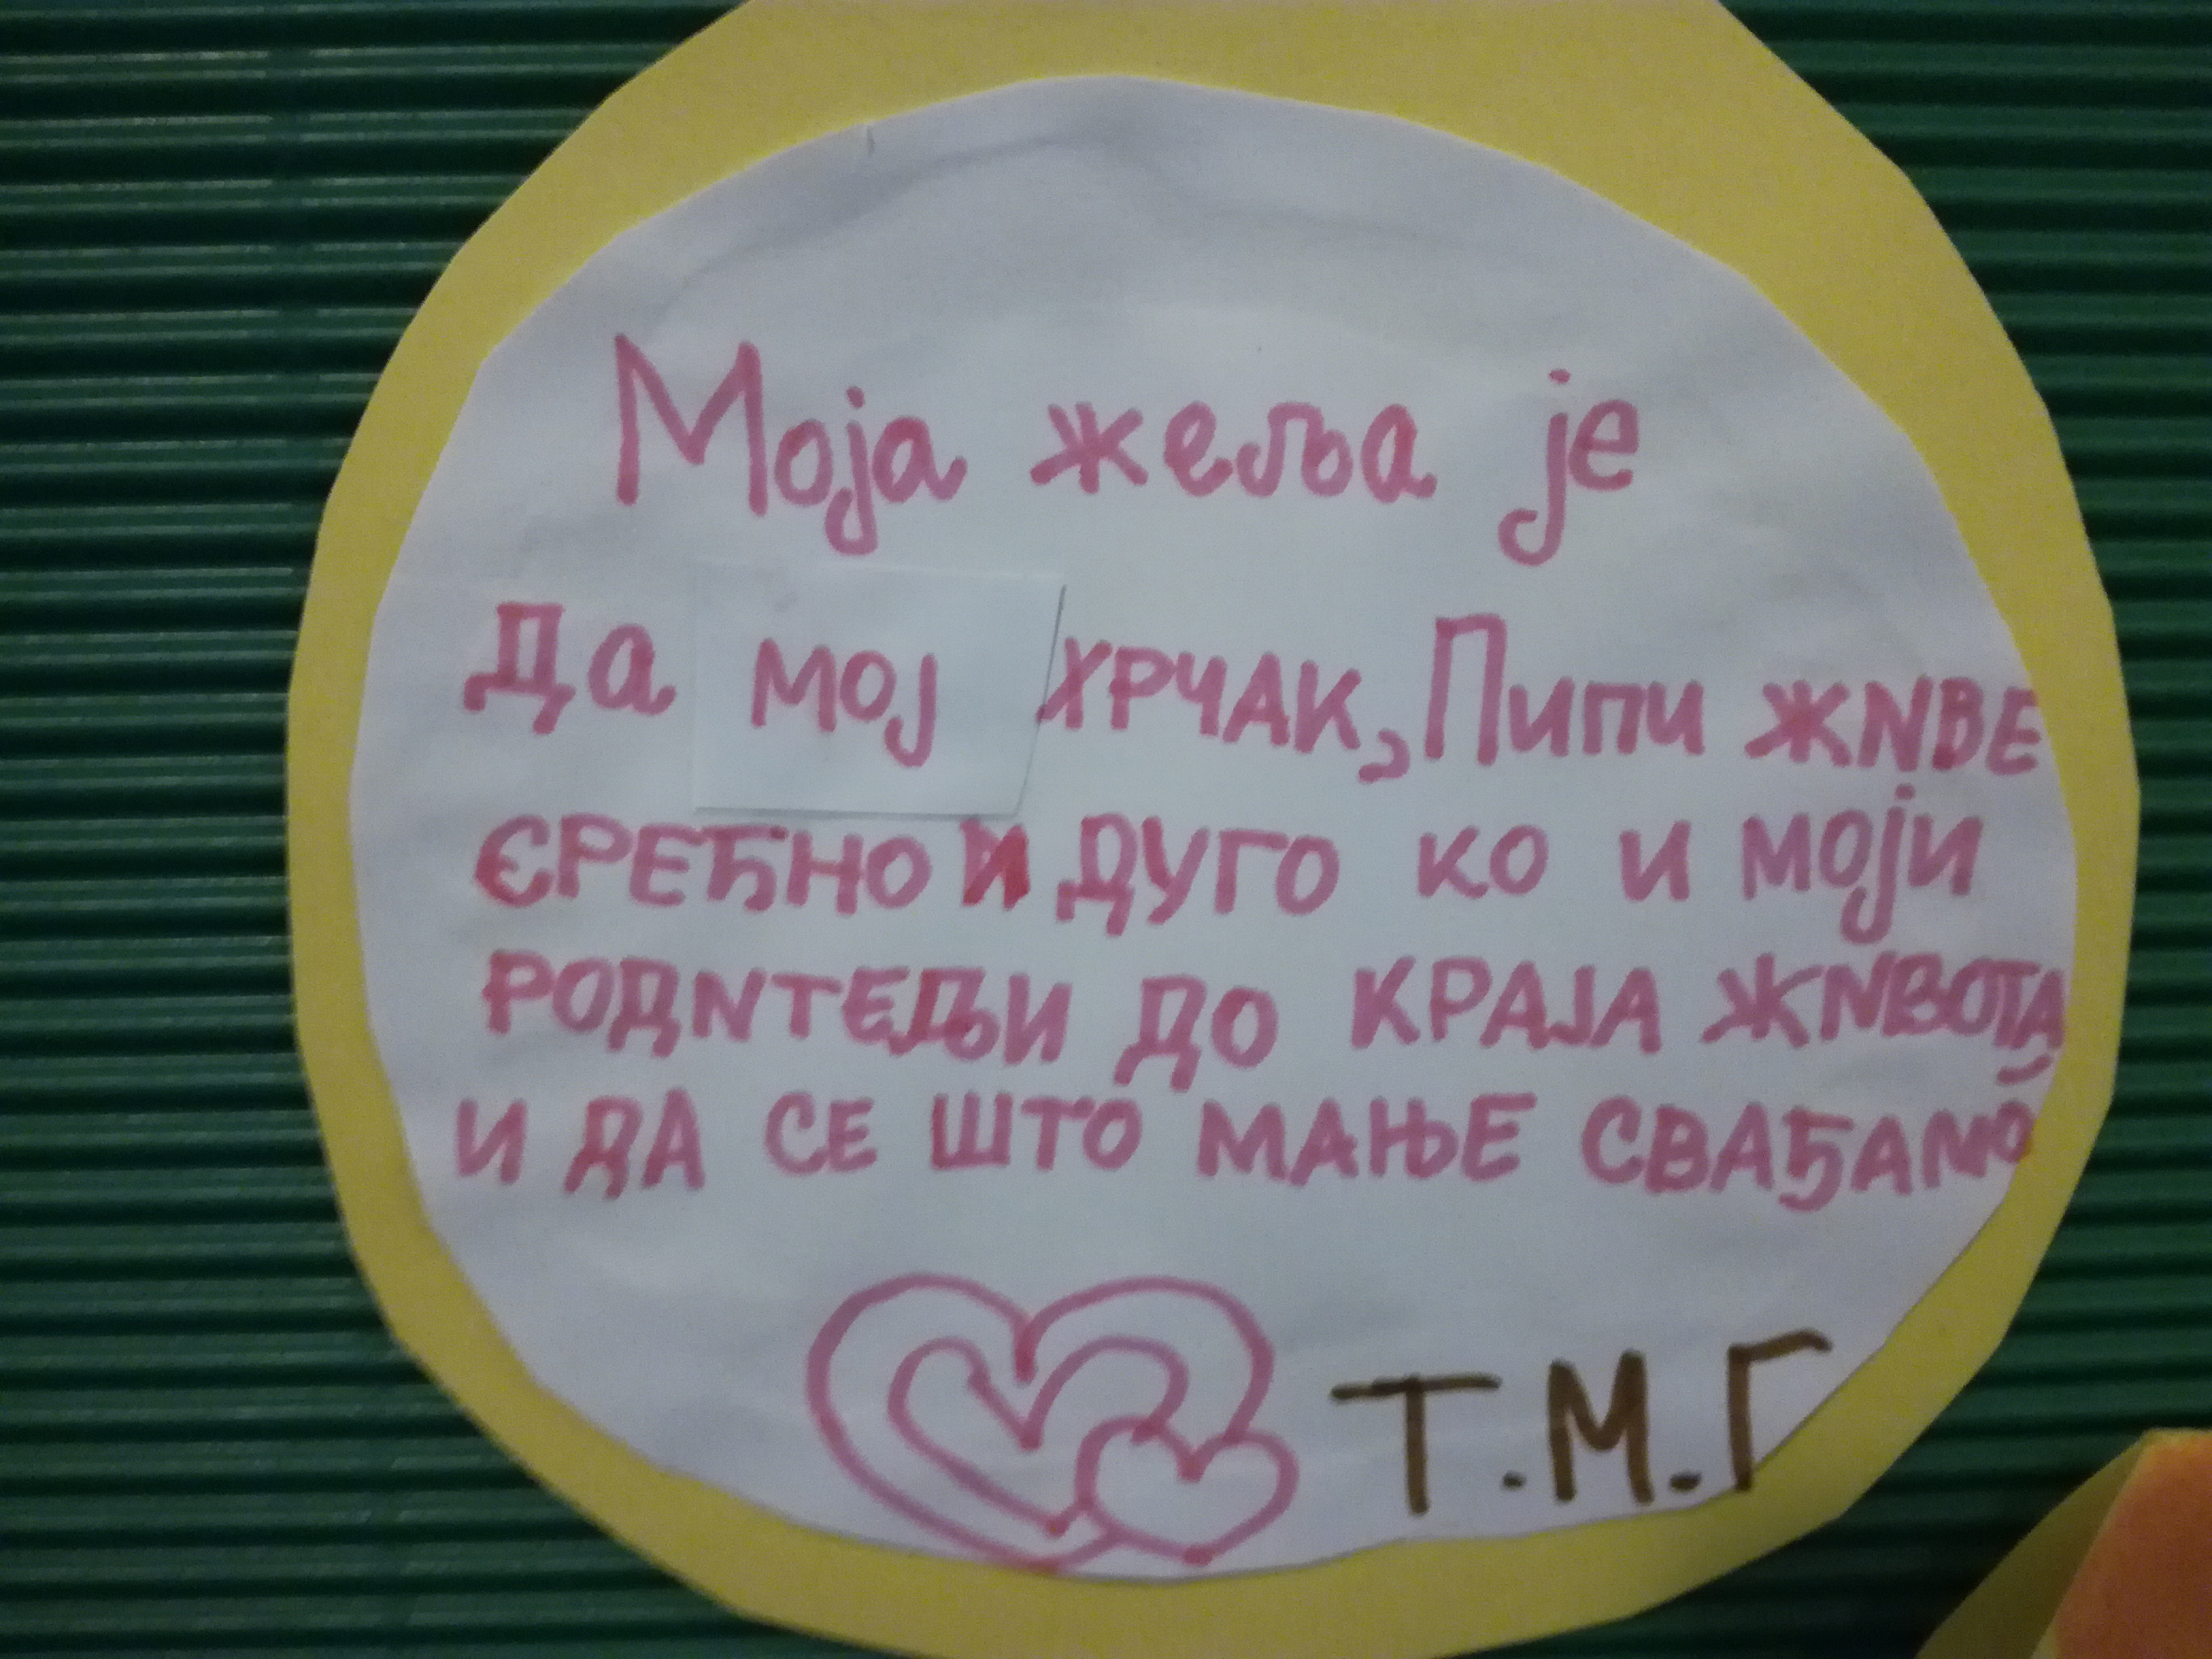 Моја жеља је
Да мој ХРЧАК, Пипи ЖИВЕ
СРЕЂНО И ДУГО КО И МОЈИ
РОДИТЕЉИ ДО КРАЈА ЖИВОТА
И ДА СЕ ШТО МАЊЕ СВАЂАМО
Т.М.Г